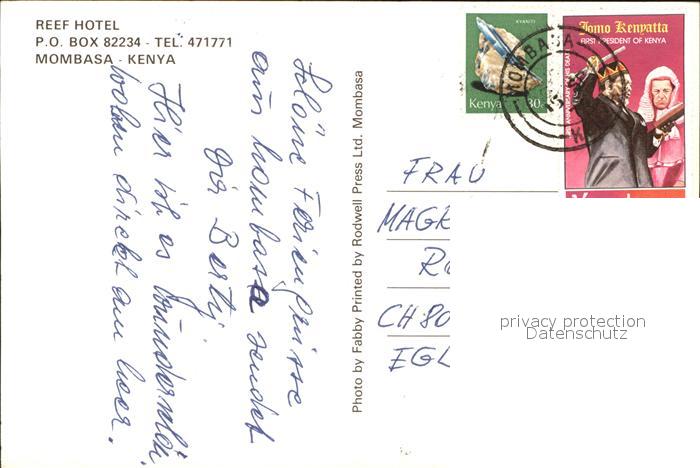 REEF HOTEL
P.O. BOX 82234 - TEL. 471771
MOMBASA - KENYA
Schöne Feriengrüsse
aus Mombasa sendet
Dir Berty
Hier ist es wunderschön
wohnen direkt am Meer.
Photo by Fabby Printed by Rodwell Press Ltd. Mombasa
KYANITE
Kenya 30
MOMBASA
Jomo Kenyatta
FIRST PRESIDENT OF KENYA
FRAU
MAGR
CH 80
EGL
privacy protection
Datenschutz